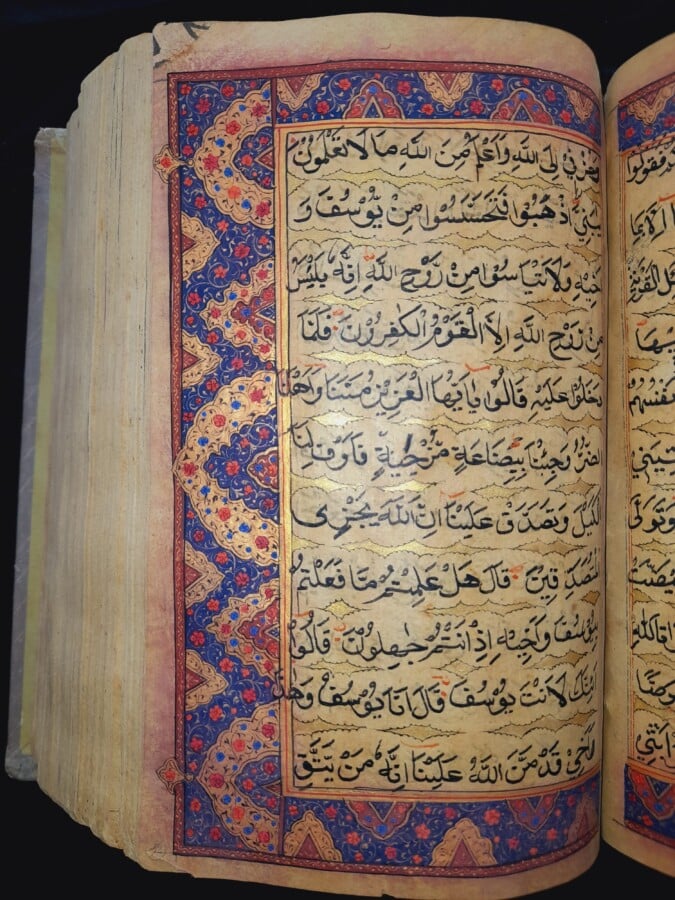 وتولى
وَحُزْنِي إِلَى اللَّهِ وَأَعْلَمُ مِنَ اللَّهِ مَا لَا تَعْلَمُونَ
يٰبَنِيَّ اذْهَبُوا فَتَحَسَّسُوا مِنْ يُوسُفَ وَ
اَخِيهِ وَلَا تَايْـَٔسُوا مِنْ رَوْحِ اللَّهِ اِنَّهُ يَايْـَٔسُ
مِنْ رَوْحِ اللَّهِ اِلَّا الْقَوْمُ الْكٰفِرُونَ فَلَمَّا
دَخَلُوا عَلَيْهِ قَالُوا يٰاَيُّهَا الْعَزِيزُ مَسَّنَا وَاَهْلَنَا
الضُّرُّ وَجِئْنَا بِبِضَاعَةٍ مُزْجٰيةٍ فَاَوْفِ لَنَا
الْكَيْلَ وَتَصَدَّقْ عَلَيْنَا اِنَّ اللَّهَ يَجْزِى
الْمُتَصَدِّقِينَ قَالَ هَلْ عَلِمْتُمْ مَا فَعَلْتُمْ
بِيُوسُفَ وَاَخِيهِ اِذْ اَنْتُمْ جٰهِلُونَ قَالُوا
ءَاِنَّكَ لَاَنْتَ يُوسُفُ قَالَ اَنَا يُوسُفُ وَهٰذَا
اَخِي قَدْ مَنَّ اللَّهُ عَلَيْنَا اِنَّهُ مَنْ يَتَّقِ